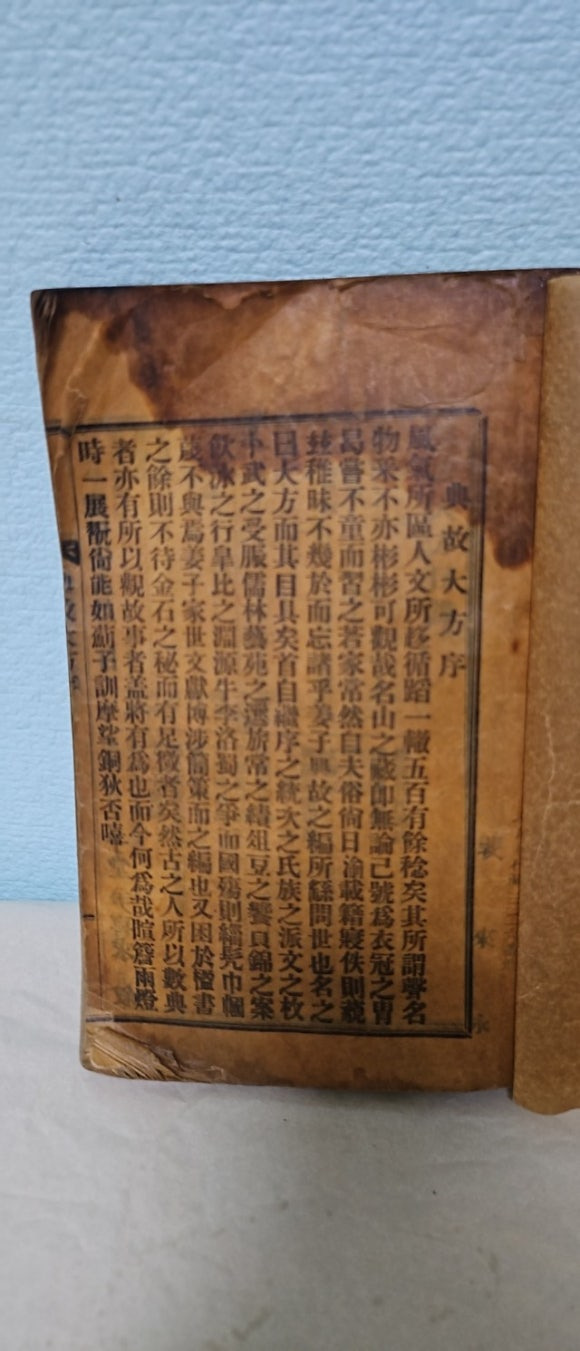 典故大方序
風氣所區人文所移循蹈一轍五百有餘稔矣其所謂聲名
物采不亦彬彬可觀哉名山之藏卽無論已號爲衣冠之冑
曷嘗不童而習之若家常然自夫俗尙日渝載籍寢佚則
稚昧不幾於而忘諸乎姜子典故之編所繇問世也名之
曰大方而其目具矣首自繼序之統次之氏族之派文之枚
卜武之受脤儒林藝苑之選旂常之績俎豆之饗貝錦之案
飮冰之行皐比之淵源牛李洛蜀之爭而國殤則緇髡巾幗
歲不與焉姜子家世文獻博涉簡策而之編也又困於檀書
之餘則不待金石之秘而有足徵者矣然古之人所以數典
者亦有所以觀故事者盖將有爲也而今何爲哉暄簷雨燈
時一展翫尙能如薊子訓摩挲銅狄否嘻
典故大方序